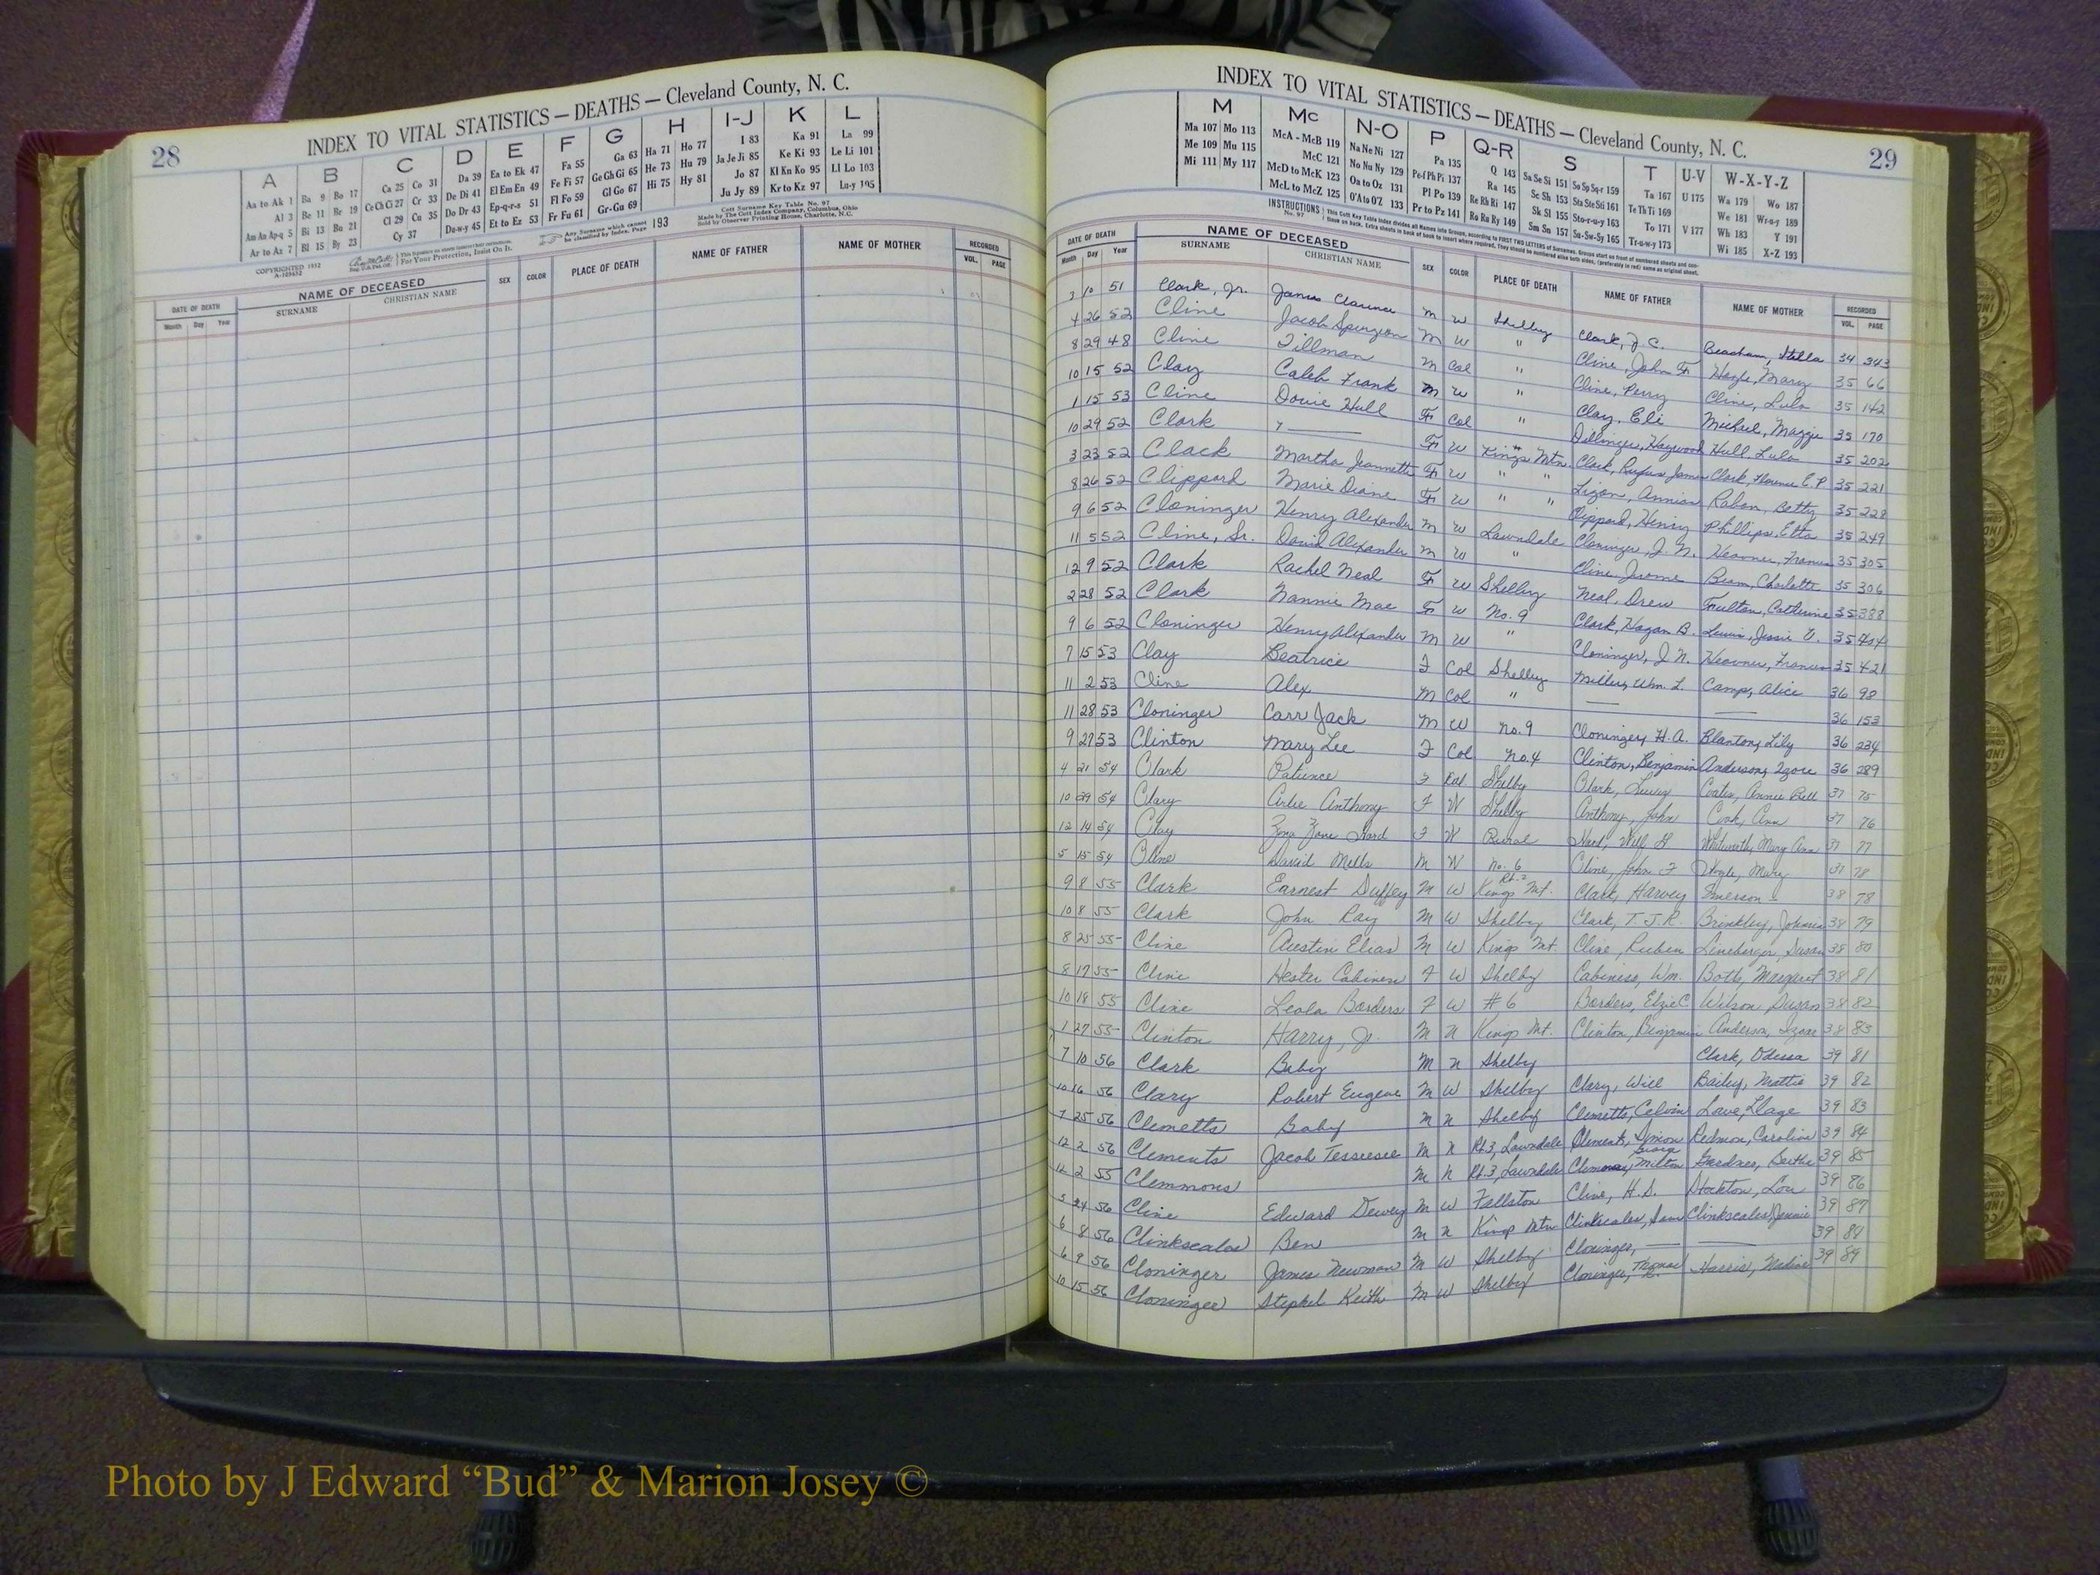 28
INDEX TO VITAL STATISTICS — DEATHS — Cleveland County, N. C.
A B C D E F G H I-J K L
Aa to Ak 1 Ba 9 Bo 17 Ca 25 Co 31 Da 39 Ea to Ek 47 Fa 55 Ga 63 Ha 71 Ho 77 I 83 Ka 91 La 99
Al 3 Be 11 Br 19 Ce Ch Ci 27 Cr 33 De Di 41 El Em En 49 Fe Fi 57 Ge Gh Gi 65 He 73 Hu 79 Ja Je Ji 85 Ke Ki 93 Le Li 101
Am An Ap-q 5 Bi 13 Bu 21 Cl 29 Cu 35 Do Dr 43 Ep-q-r-s 51 Fl Fo 59 Gl Go 67 Hi 75 Hy 81 Jo 87 Kl Kn Ko 95 Ll Lo 103
Ar to Az 7 Bl 15 By 23 Cy 37 Du-w-y 45 Et to Ez 53 Fr Fu 61 Gr-Gu 69 Ju Jy 89 Kr to Kz 97 Lu-y 105
COPYRIGHTED 1932
For Your Protection, Insist On It.
Any Surname which cannot be classified by Index. Page 193
Cott Surname Key Table No. 97
Made by The Cott Index Company, Columbus, Ohio
Sold by Observer Printing House, Charlotte, N.C.
DATE OF DEATH NAME OF DECEASED SEX COLOR PLACE OF DEATH NAME OF FATHER NAME OF MOTHER RECORDED
Month Day Year SURNAME CHRISTIAN NAME VOL. PAGE
INDEX TO VITAL STATISTICS — DEATHS — Cleveland County, N. C.
29
M Mc N-O P Q-R S T U-V W-X-Y-Z
Ma 107 Mo 113 McA - McB 119 Na Ne Ni 127 Pa 135 Q 143 Sa Se Si 151 So Sp Sq-r 159 Ta 167 U 175 Wa 179 Wo 187
Me 109 Mu 115 McC 121 No Nu Ny 129 Pe-f Ph Pi 137 Ra 145 Sc Sh 153 Sta Ste Sti 161 Te Th Ti 169 We 181 Wr-u-y 189
Mi 111 My 117 McD to McK 123 Oa to Oz 131 Pl Po 139 Re Rh Ri 147 Sk Sl 155 Sto-r-u-y 163 To 171 V 177 Wh 183 Y 191
McL to McZ 125 O'A to O'Z 133 Pr to Pz 141 Ro Ru Ry 149 Sm Sn 157 Su-Sw-Sy 165 Tr-u-w-y 173 Wi 185 X-Z 193
INSTRUCTIONS No. 97 This Cott Key Table Index divides all Names into Groups, according to FIRST TWO LETTERS of Surnames.
DATE OF DEATH NAME OF DECEASED SEX COLOR PLACE OF DEATH NAME OF FATHER NAME OF MOTHER RECORDED
Month Day Year SURNAME CHRISTIAN NAME VOL. PAGE
3 10 51 Clark, Jr. James Clarence M W Shelby Clark, J. C. Beacham, Stella 34 343
4 26 52 Cline Jacob Spurgeon M W " Cline, John F Hoyle, Mary 35 66
8 29 48 Cline Tillman M Col " Cline, Perry Cline, Lula 35 142
10 15 52 Clay Caleb Frank M W " Clay, Eli Michael, Maggie 35 170
1 15 53 Cline Dovie Hull F Col " Dillinger, Haywood Hull, Lula 35 202
10 29 52 Clark F W Kings Mtn. Clark, Rufus James Clark, Florence E. P. 35 221
3 23 52 Clack Martha Jeannette F W " " Annias Rabon, Betty 35 228
8 26 52 Clippard Marie Diane F W " " Clippard, Henry Phillips, Etta 35 249
9 6 52 Cloninger Henry Alexander M W Lawndale Cloninger, J. N. Heavner, Frances 35 305
11 5 52 Cline, Sr. David Alexander M W " Cline, Jerome Beam, Charlotte 35 306
12 9 52 Clark Rachel Neal F W Shelby Neal, Drew Fulton, Catherine 35 388
2 28 52 Clark Nannie Mae F W No. 9 Clark, Hagan B. Jessie V. 35 404
9 6 52 Cloninger Henry Alexander M W " Cloninger, J. N. Heavner, Frances 35 421
7 15 53 Clay Beatrice F Col Shelby Miller, Wm. L. Camp, Alice 36 98
11 2 53 Cline Alex M Col " — — 36 153
11 28 53 Cloninger Carr Jack M W No. 9 Cloninger, H. A. Blanton, Lily 36 234
9 27 53 Clinton Mary Lee F Col No. 4 Clinton, Benjamin Anderson, Izora 36 289
4 21 54 Clark Patience F Col Shelby Clark, Coates, Annie Bell 37 75
10 29 54 Clary Arlie Anthony F W Shelby Anthony, John Cook, Ann 37 76
12 14 54 Clay Zona Hord F W Rural Hord, Will Whitworth, Mary Ann 37 77
5 15 54 Cline David Mills M W No. 6 Cline, John F Hoyle, Mary 37 78
9 8 55 Clark Earnest Duffey M W Rt. 2 Kings Mt. Clark, Harvey Emerson 38 78
10 8 55 Clark John Ray M W Shelby Clark, T. J. R. Brinkley, 38 79
8 25 55 Cline Austin Elias M W Kings Mt. Cline, Ruben Lineberger, Susan 38 80
8 17 55 Cline Hester Cabiness F W Shelby Cabiness, Wm. Botts, Margaret 38 81
10 18 55 Cline Leola Borders F W #6 Borders, Elzie C. Wilson, Susan 38 82
1 27 55 Clinton Harry, Jr. M N Kings Mt. Clinton, Benjamin Anderson, Izora 38 83
7 10 56 Clark Baby M N Shelby Clark, Odessa 39 81
10 16 56 Clary Robert Eugene M W Shelby Clary, Will Bailey, Mattie 39 82
7 25 56 Clemetts Baby M N Shelby Clemetts, Calvin 39 83
12 2 56 Clements Jacob M N Rt. 3, Lawndale Clement, Simon Redmon, Caroline 39 84
12 2 55 Clemmons M N Rt. 3, Lawndale Milton Gardner, Bertha 39 85
5 24 56 Cline Edward Dewey M W Fallston Cline, H. S. Stockton, Lou 39 86
6 8 56 Clinkscales Ben M N Kings Mtn Clinkscales, Sam Clinkscales, Jennie 39 87
6 9 56 Cloninger James Newman M W Shelby Cloninger, — — 39 88
10 15 56 Cloninger Stephel Keith M W Shelby Cloninger, Thomas Harris, Nadine 39 89
Photo by J Edward “Bud” & Marion Josey ©